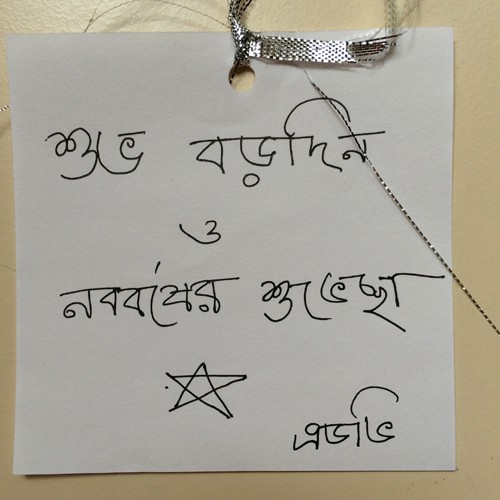 শুভ বড়দিন
ও
নববর্ষের শুভেচ্ছা
এডভি